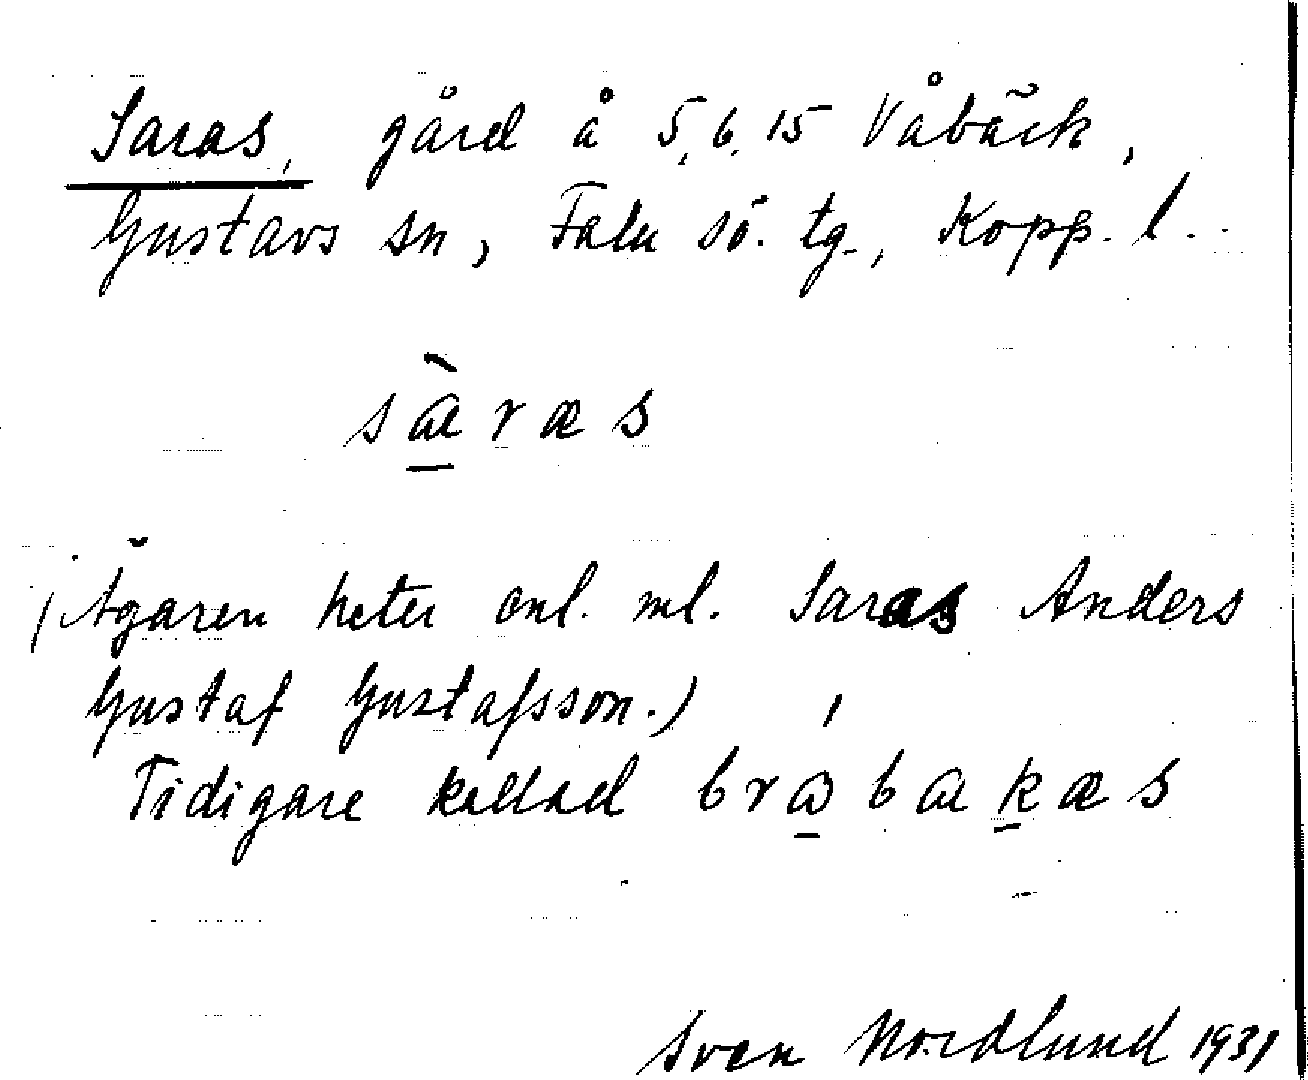 Saras, gård å 5, 6, 15 Våbäck,
Gustavs sn, Falu sö. tg., Kopp. l.
sàras
(Ägaren heter enl. ml. Saras Anders
Gustaf Gustafsson.)
Tidigare kallad brabakas
Sven Nordlund 1931